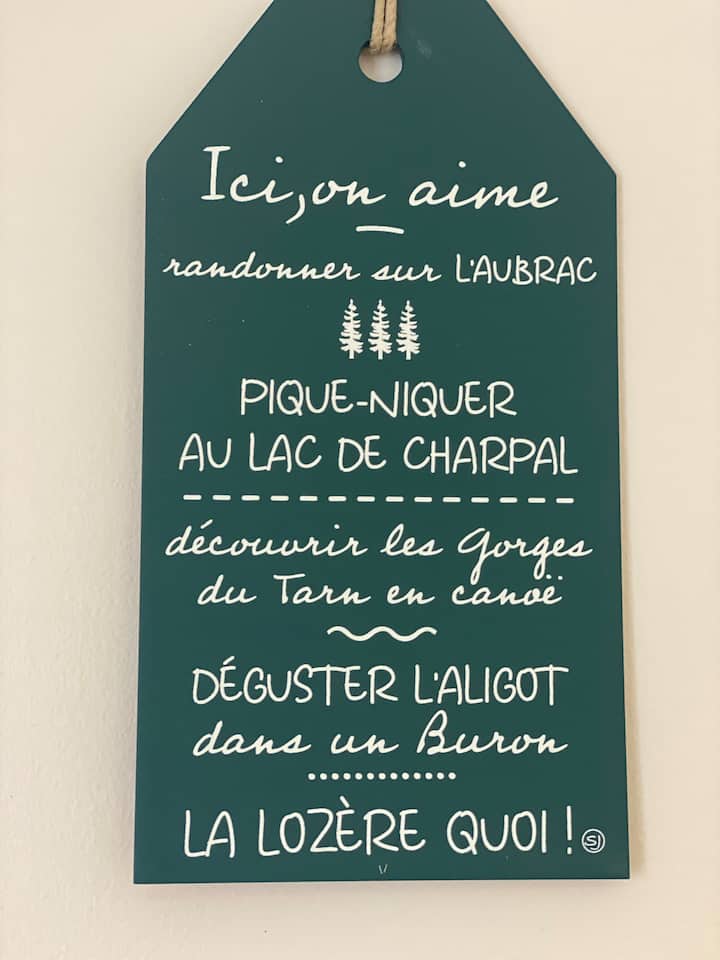 Ici, on aime
randonner sur L'AUBRAC
PIQUE-NIQUER
AU LAC DE CHARPAL
découvrir les Gorges
du Tarn en canoë
DÉGUSTER L'ALIGOT
dans un Buron
LA LOZÈRE QUOI ! SJ